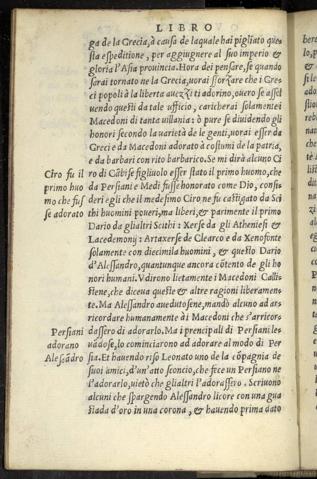 LIBRO
ga de la Grecia, à causa de laquale hai pigliato que=
sta espeditione, per aggiugnere al suo imperio &
gloria l'Asia prouincia. Hora dei pensare, se quando
sarai tornato ne la Grecia, uorai sforzare che i Gre=
ci popoli à la liberta auezzi ti adorino, ouero se assol
uendo questi da tale ufficio, caricherai solamente i
Macedoni di tanta uillania: ò pure se diuidendo gli
honori secondo la varietà de le genti, uorai esser da
Greci e da Macedoni adorato à costumi de la patria,
e da barbari con rito barbarico. Se mi dirà alcuno Ci
Ciro fu il
ro di Cãbise figliuolo esser stato il primo huomo, che
primo huo
da Persiani e Medi fusse honorato come Dio, consi=
mo che fus
deri egli che il medesimo Ciro ne fu castigato da Sci
se adorato
thi huomini poueri, ma liberi, & parimente il primo
Dario da glialtri Scithi: Xerse da gli Atheniesi &
Lacedemonij: Artaxerse de Clearco e da Xenofonte
solamente con diecimila huomini, & questo Dario
d'Alessandro, quantunque ancora cõtento de gli ho
nori humani. Vdirono lietamente i Macedoni Calli
stene, che diceua queste & altre ragioni liberamen=
te. Ma Alessandro auedutosene, mandò alcuno ad ars
ricordare humanamente à i Macedoni che s'arricors
Persiani
dassero di adorarlo. Ma i principali di Persiani les
adorano
uãdose, lo cominciarono ad adorare al modo di Per
Alessãdro
sia. Et hauendo riso Leonato uno de la cõpagnia de
suoi amici, d'un'atto sconcio, che fece un Persiano ne
l'adorarlo, uietò che glialtri l'adorassero. Scriuono
alcuni che spargendo Alessandro licore con una gua
stada d'oro in una corona, & hauendo prima dato